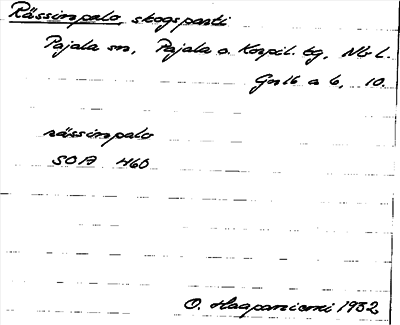 Rässimpalo, skogsparti
Pajala sn, Pajala o. Korpil. tg, Nb l.
Gn 16 a 6, 10.
rässimpalo
SOA 460
O. Haapaniemi 1932